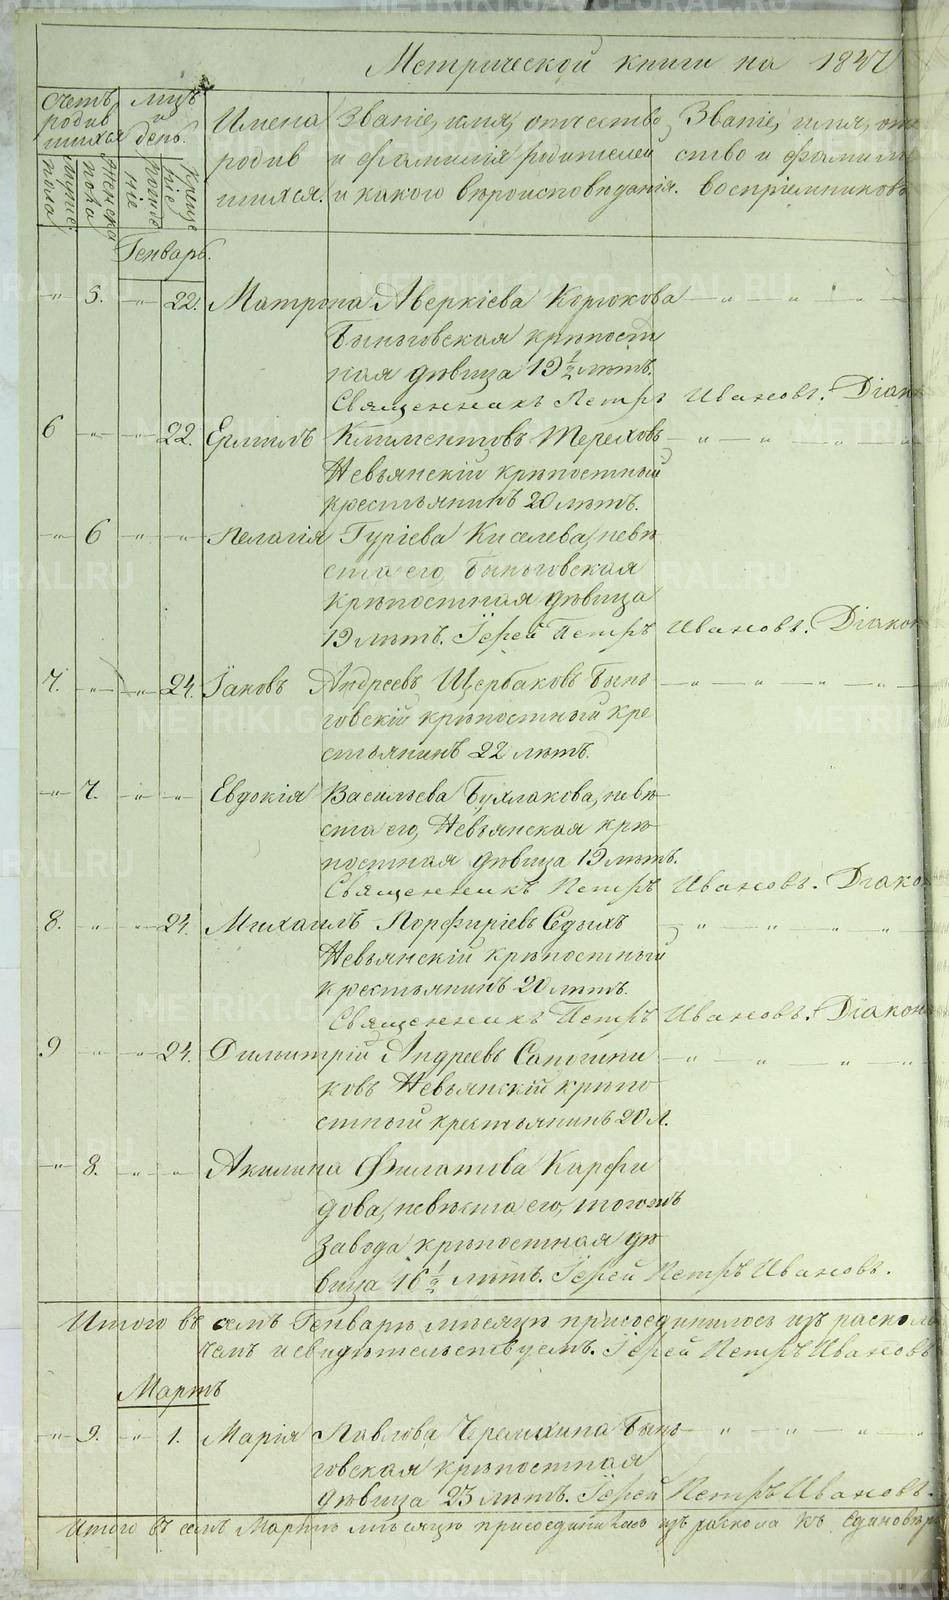 Метрической книги на 1847
Счетъ родив шихся
мцъ и день.
Имена родив шихся.
Званіе, имя, отчество, и фамилія родителей и какого вѣроисповѣданія.
Званіе, имя, отче ство и фамилія воспріемниковъ
мужес. пола
женска пола
рожде ніе
креще ніе
Генварь.
5. 22. Матрона Аверкіева Корюкова
Быньговская крѣпост
ная дѣвица 19½ лѣтъ.
Священникъ Петръ Ивановъ. Діакон
6 22. Ермилъ Климентовъ Тереховъ
Невьянскій крѣпостный
крестьянинъ 20 лѣтъ.
6 Пелагія Гуріева Киселева, невѣ
ста его, Быньговская
крѣпостная дѣвица
19 лѣтъ. Іерей Петръ Ивановъ. Діакон
7. 24. Іаковъ Андреевъ Щербаковъ Бынь
говскій крѣпостный кре
стьянинъ 22 лѣтъ.
7. Евдокія Васильева Бухлакова, невѣ
ста его, Невьянская крѣ
постная дѣвица 19 лѣтъ.
Священникъ Петръ Ивановъ. Діакон
8. 24. Михаилъ Порфиріевъ Седыхъ
Невьянскій крѣпостный
крестьянинъ 20 лѣтъ.
Священникъ Петръ Ивановъ. Діаконъ
9 24. Димитрій Андреевъ Сапожни
ковъ Невьянскій крѣпо
стный крестьянинъ 20 л.
8. Акилина Филатова Карфи
дова, невѣста его, тогожъ
завода крѣпостная дѣ
вица 16½ лѣтъ. Іерей Петръ Ивановъ.
Итого въ семъ Генварѣ мѣсяцѣ присоединилось изъ раскола
чемъ и свидѣтельствуемъ. Іерей Петръ Ивановъ
Мартъ
9. 1. Марія Павлова Черемхина Бынь
говская крѣпостная
дѣвица 23 лѣтъ. Іерей Петръ Ивановъ.
Итого въ семъ Мартѣ мѣсяцѣ присоединилось изъ раскола къ Единовѣрі
METRIKI.GASO-URAL.RU